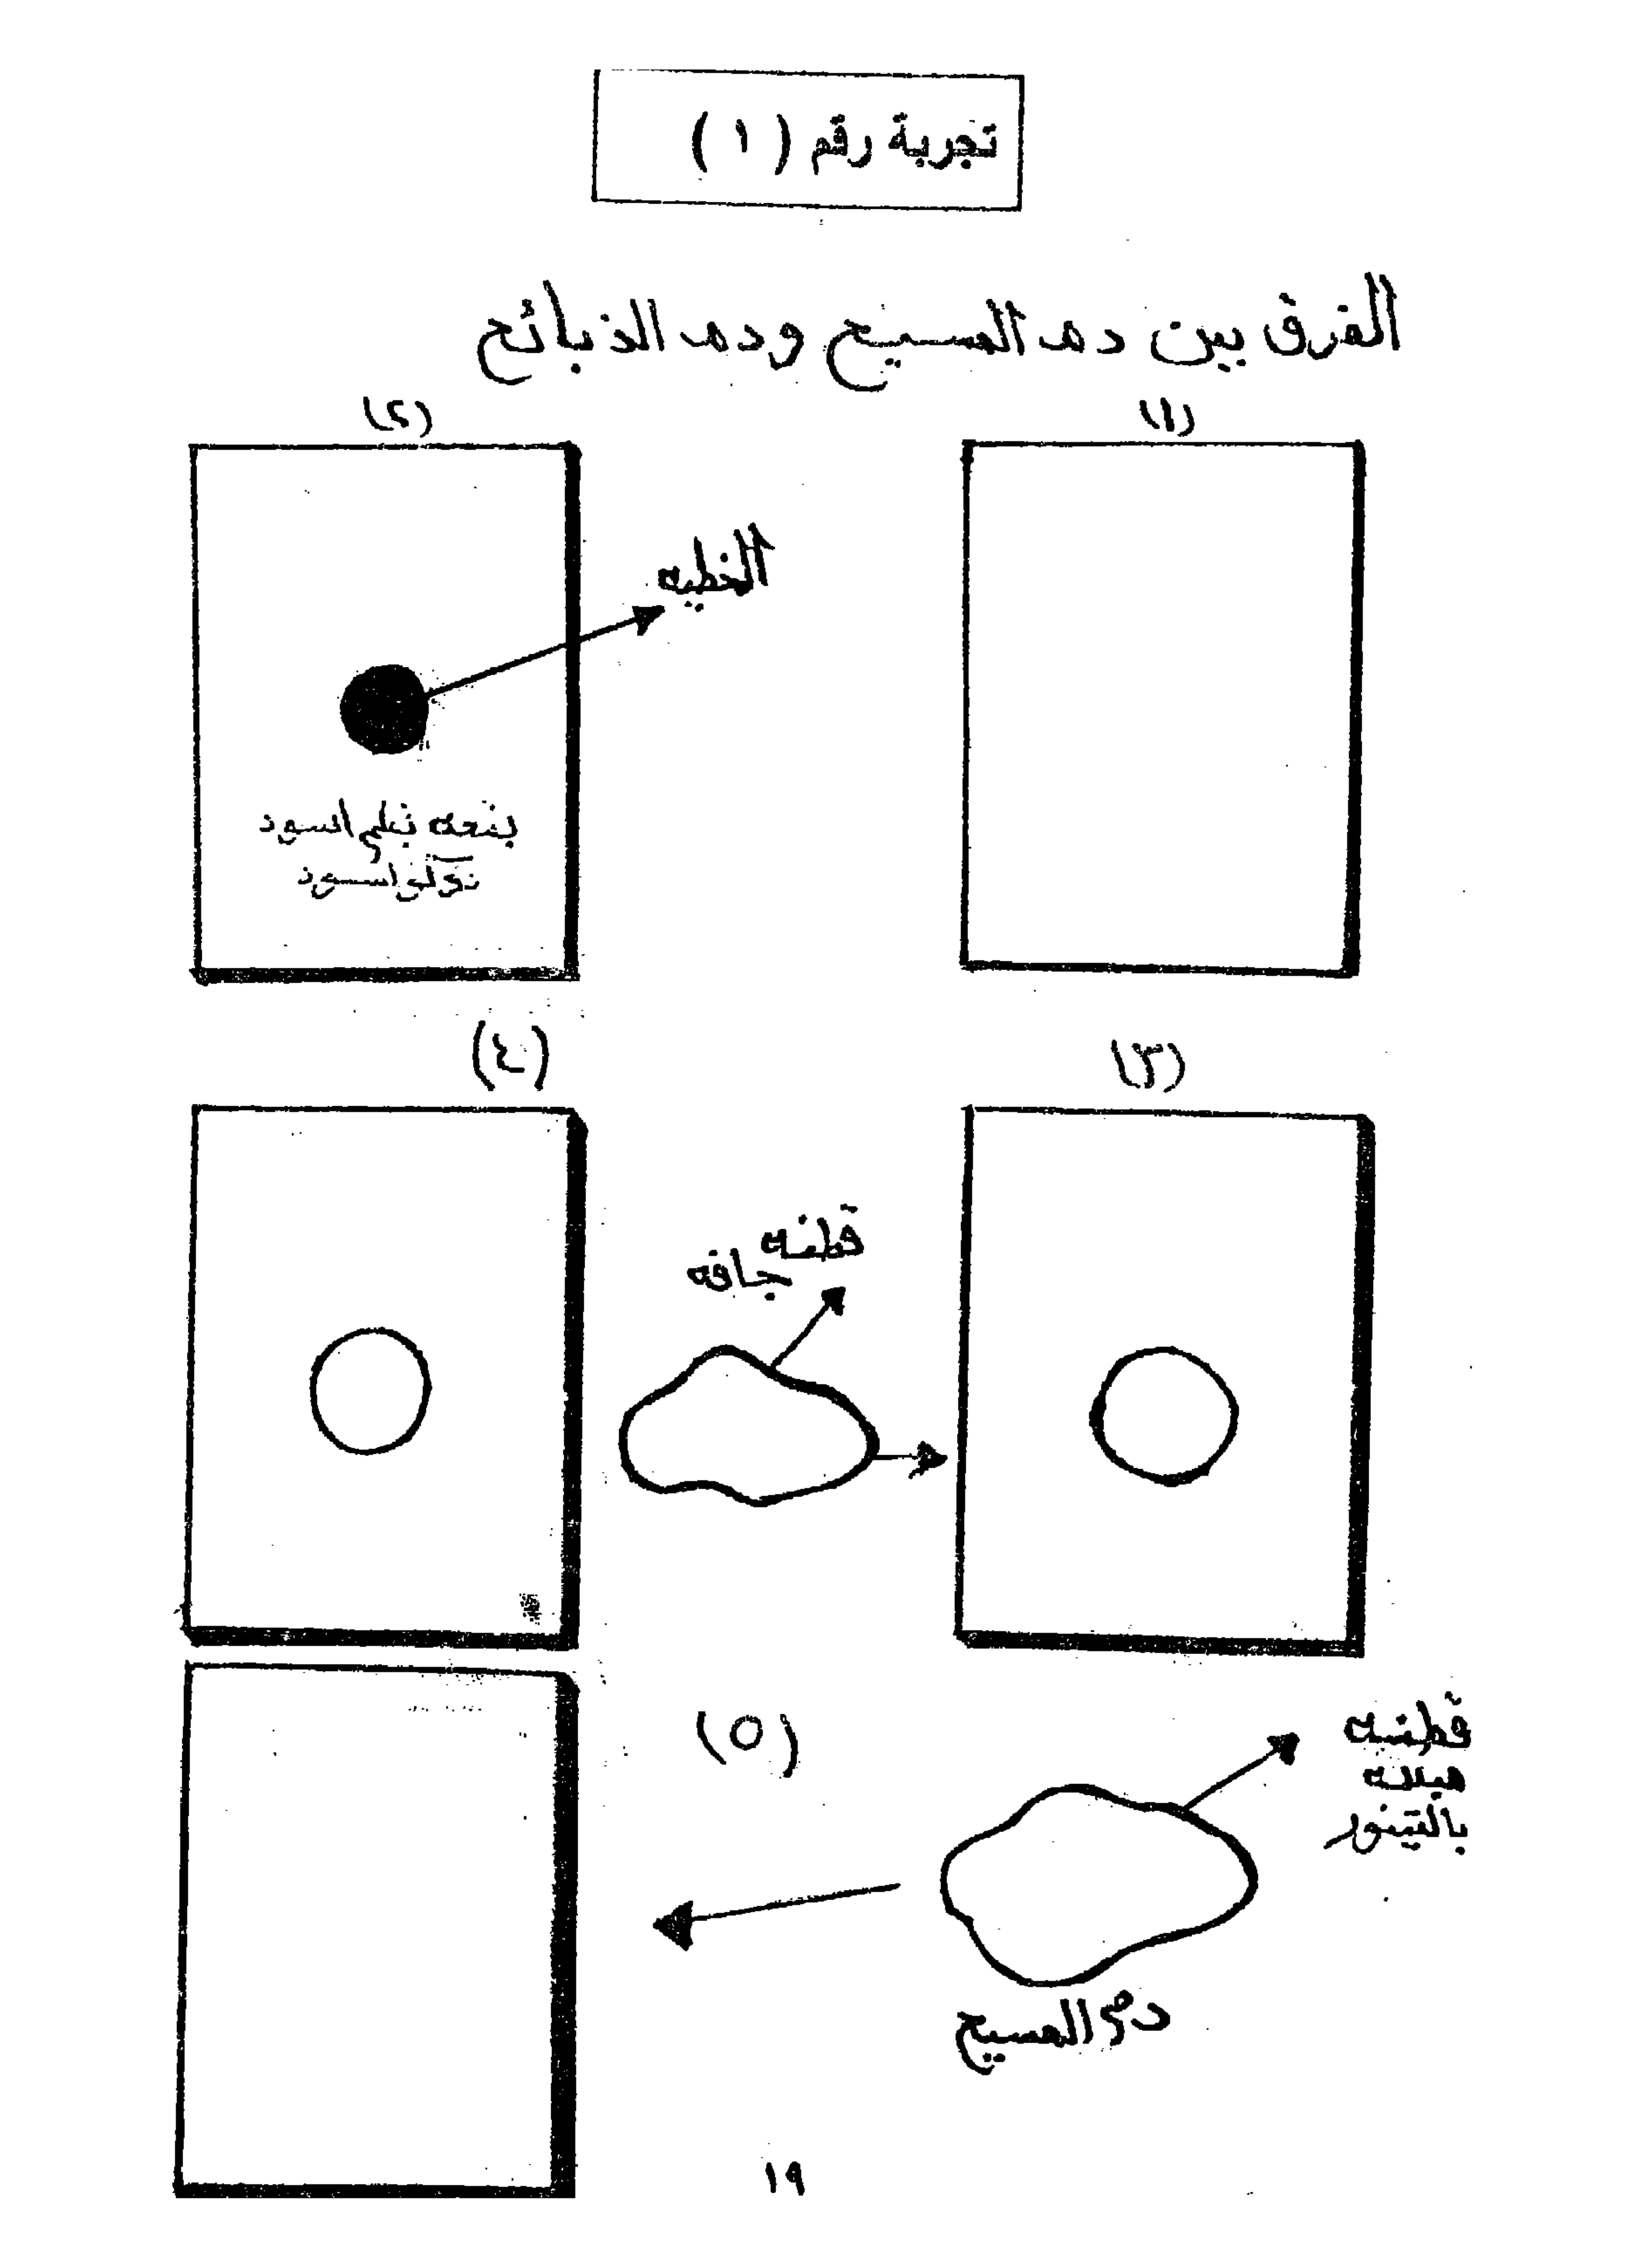 تجربة رقم ( ١ )
الفرق بين دم المسيح ودم الذبائح
(١)
(٢)
الخطيه
بقعه بقلم اسود
اسود
(٣)
(٤)
قطنه
جافه
(٥)
قطنه
مبلله
بالتينور
دم المسيح
١٩